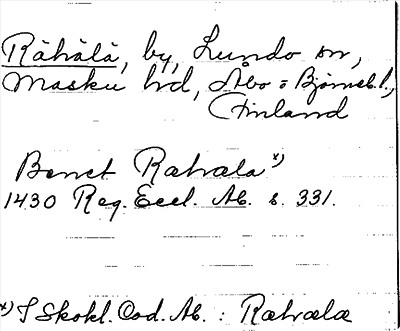 Rähälä, by, Lundo sn,
Masku hd, Åbo o Björneb. l.,
Finland
Benct Rahala x)
1430 Reg. Eccl. Ab. s. 331.
x) I Skokl. Cod. Ab. : Rahala